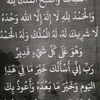 وَالْحَمْدُ لِلَّهِ لَا إِلَهَ إِلَّا اللَّهُ وَحْدَهُ
لَا شَرِيكَ لَهُ لَهُ الْمُلْكُ وَلَهُ الْحَمْدُ
وَهُوَ عَلَى كُلِّ شَيْءٍ قَدِيرٌ
رَبِّ إِنِّي أَسْأَلُكَ خَيْرَ مَا فِي هَذَا
الْيَوْمِ وَخَيْرَ مَا بَعْدَهُ وَأَعُوذُ بِكَ